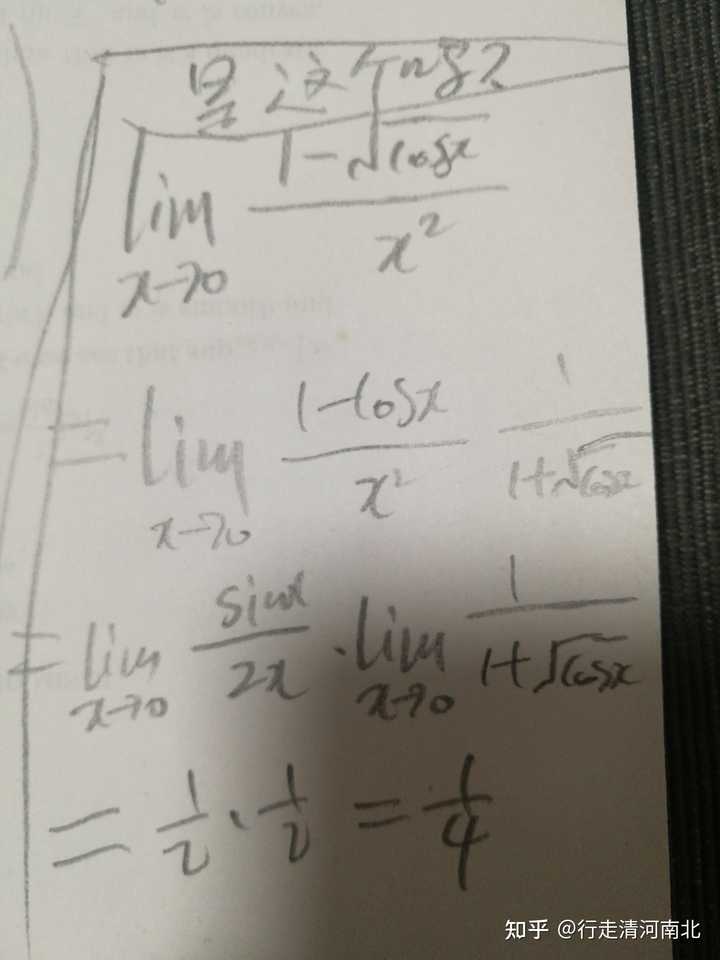 是这个吗？
lim x→0 (1-√cosx)/x²
= lim x→0 (1-cosx)/x² 1/(1+√cosx)
= lim x→0 sinx/2x · lim x→0 1/(1+√cosx)
= 1/2 · 1/2 = 1/4
知乎 @行走清河南北